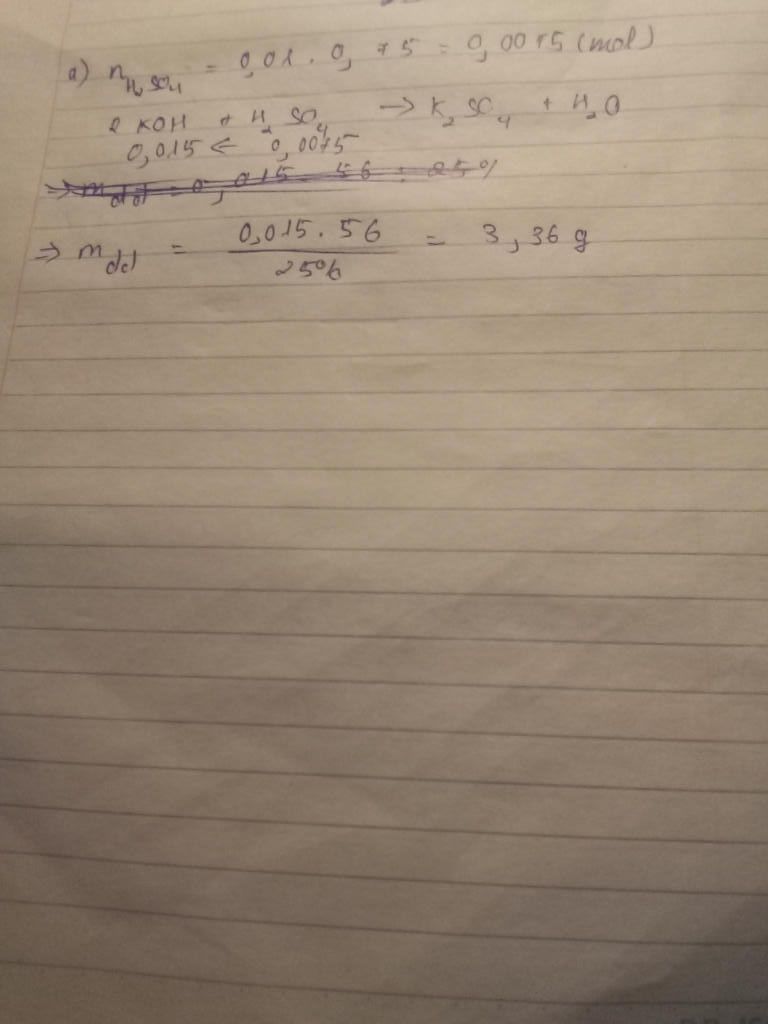 a) n H₂SO₄ = 0,01 . 0,75 = 0,0075 (mol)
2 KOH + H₂SO₄ → K₂SO₄ + H₂O
0,015 ← 0,0075
⇒ m dd = 0,015 . 56 : 25%
⇒ m dd = 0,015 . 56 / 25% = 3,36 g